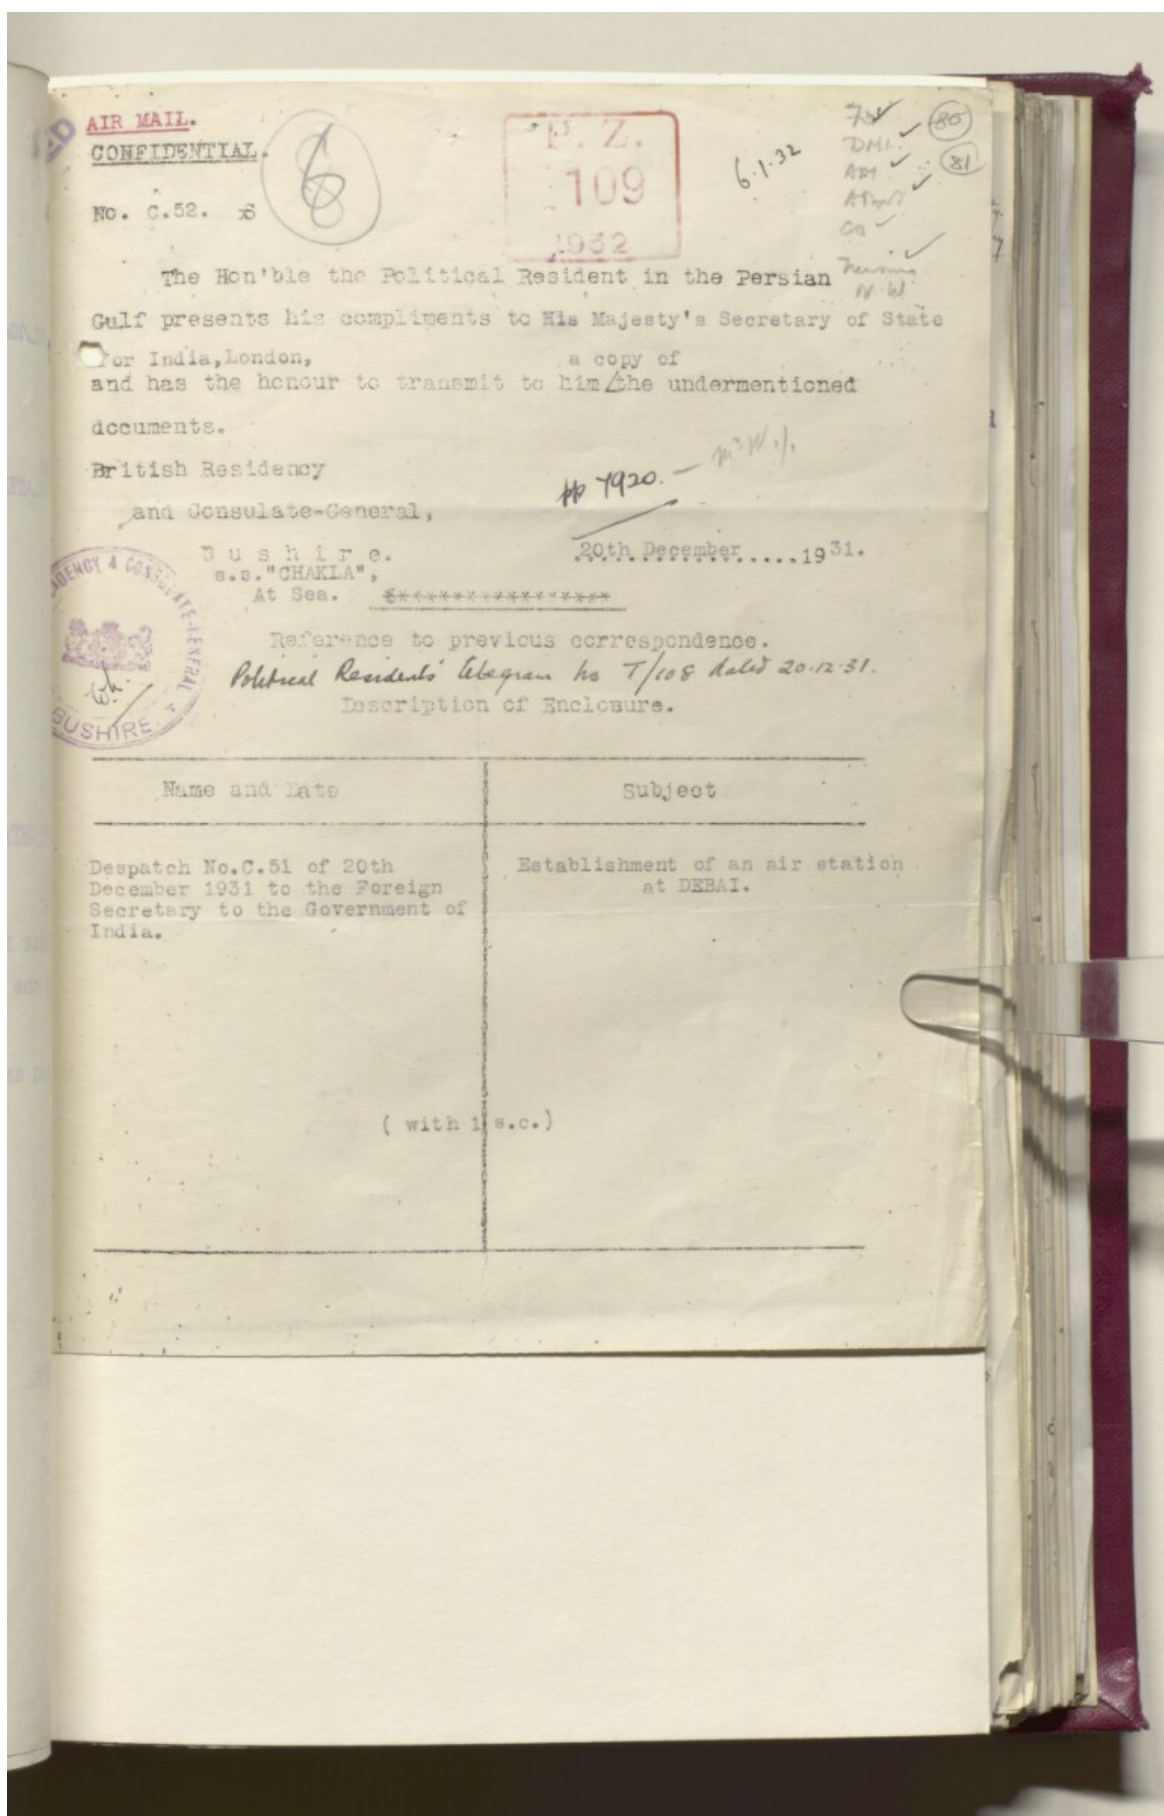 AIR MAIL.
CONFIDENTIAL.
No. C.52.
6
P. Z.
109
1932
6.1.32
DMI.
80
81
The Hon'ble the Political Resident in the Persian
Gulf presents his compliments to His Majesty's Secretary of State
for India, London,
a copy of
and has the honour to transmit to him/the undermentioned
documents.
British Residency
and Consulate-General,
pp 7920.
Bushire.
20th December.....1931.
s.s."CHAKLA",
At Sea.
RESIDENCY & CONSULATE-GENERAL
BUSHIRE
Reference to previous correspondence.
Political Residents' telegram No T/108 dated 20.12.31.
Description of Enclosure.
Name and Date
Subject
Despatch No.C.51 of 20th
December 1931 to the Foreign
Secretary to the Government of
India.
Establishment of an air station
at DEBAI.
( with 1 s.c.)